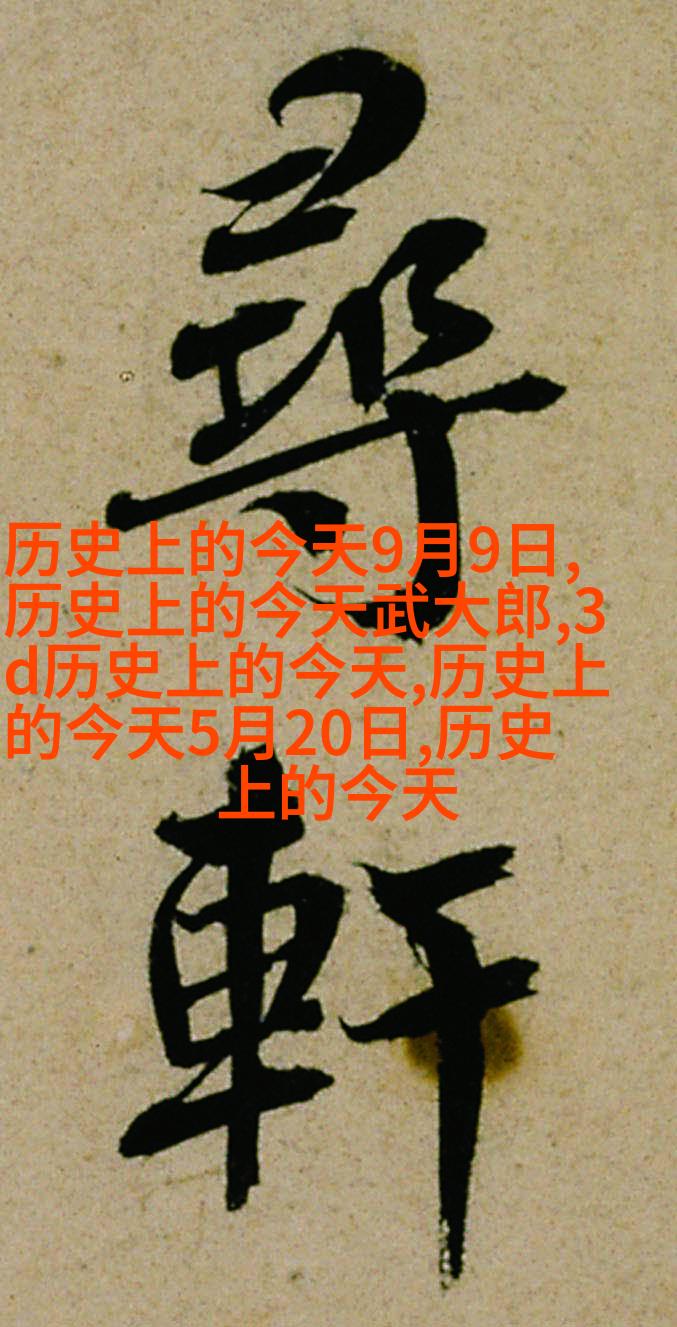 尋
軒
历史上的今天9月9日,
历史上的今天武大郎,3
d历史上的今天,历史上
的今天5月20日,历史
上的今天